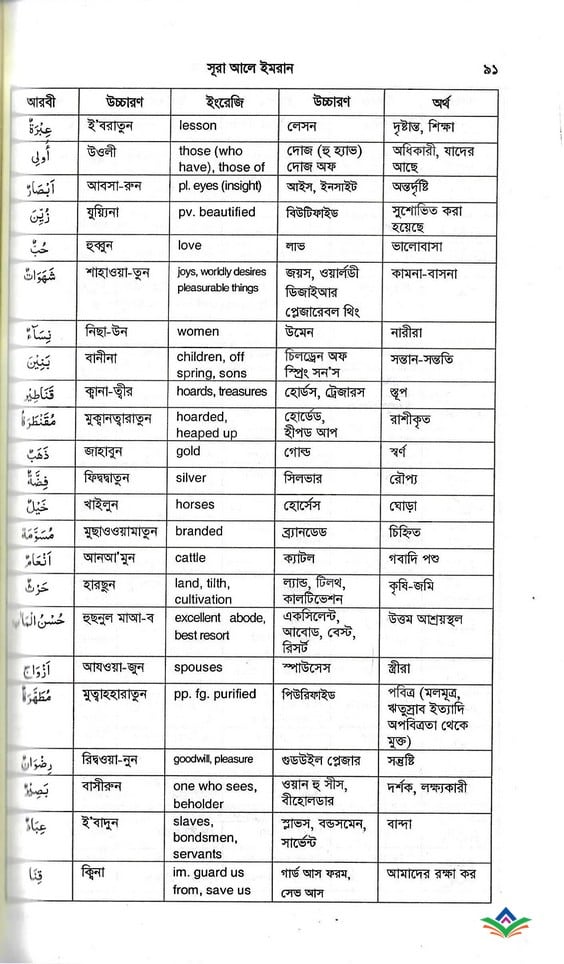 সূরা আলে ইমরান ৯১
আরবী উচ্চারণ ইংরেজি উচ্চারণ অর্থ
عِبْرَةٌ ই'বরাতুন lesson লেসন দৃষ্টান্ত, শিক্ষা
أُولِى উওলী those (who দোজ (হু হ্যাভ) অধিকারী, যাদের
have), those of দোজ অফ আছে
اَبْصَارٌ আবসা-রুন pl. eyes (insight) আইস, ইনসাইট অন্তর্দৃষ্টি
زُيِّنَ যুয়্যিনা pv. beautified বিউটিফাইড সুশোভিত করা
হয়েছে
حُبٌّ হুব্বুন love লাভ ভালোবাসা
شَهَوَاتٌ শাহাওয়া-তুন joys, worldly desires জয়স, ওয়ার্লডী কামনা-বাসনা
pleasurable things ডিজাইআর
প্লেজারেবল থিং
نِسَآءٌ নিছা-উন women উমেন নারীরা
بَنِيْنَ বানীনা children, off চিলড্রেন অফ সন্তান-সন্ততি
spring, sons স্প্রিং সন'স
قَنَاطِيْرُ ক্বানা-ত্বীর hoards, treasures হোর্ডস, ট্রেজারস স্তূপ
مُقَنْطَرَةٌ মুক্বানত্বারাতুন hoarded, হোর্ডেড, রাশীকৃত
heaped up হীপড আপ
ذَهَبٌ জাহাবুন gold গোল্ড স্বর্ণ
فِضَّةٌ ফিদ্দ্বাতুন silver সিলভার রৌপ্য
خَيْلٌ খাইলুন horses হোর্সেস ঘোড়া
مُسَوَّمَةٌ মুছাওওয়ামাতুন branded ব্র্যানডেড চিহ্নিত
اَنْعَامٌ আনআ'মুন cattle ক্যাটল গবাদি পশু
حَرْثٌ হারছুন land, tilth, ল্যান্ড, টিলথ, কৃষি-জমি
cultivation কালটিভেশন
حُسْنُ الْمَاٰبِ হুছনুল মাআ-ব excellent abode, একসিলেন্ট, উত্তম আশ্রয়স্থল
best resort আবোড, বেস্ট,
রিসর্ট
اَزْوَاجٌ আযওয়া-জুন spouses স্পাউসেস স্ত্রীরা
مُطَهَّرَةٌ মুত্বাহহারাতুন pp. fg. purified পিউরিফাইড পবিত্র (মলমূত্র,
ঋতুস্রাব ইত্যাদি
অপবিত্রতা থেকে
মুক্ত)
رِضْوَانٌ রিদ্বওয়া-নুন goodwill, pleasure গুডউইল প্লেজার সন্তুষ্টি
بَصِيْرٌ বাসীরুন one who sees, ওয়ান হু সীস, দর্শক, লক্ষ্যকারী
beholder বীহোলডার
عِبَادٌ ই'বাদুন slaves, স্লাভস, বন্ডসমেন, বান্দা
bondsmen, সার্ভেন্ট
servants
قِنَا ক্বিনা im. guard us গার্ড আস ফরম, আমাদের রক্ষা কর
from, save us সেভ আস